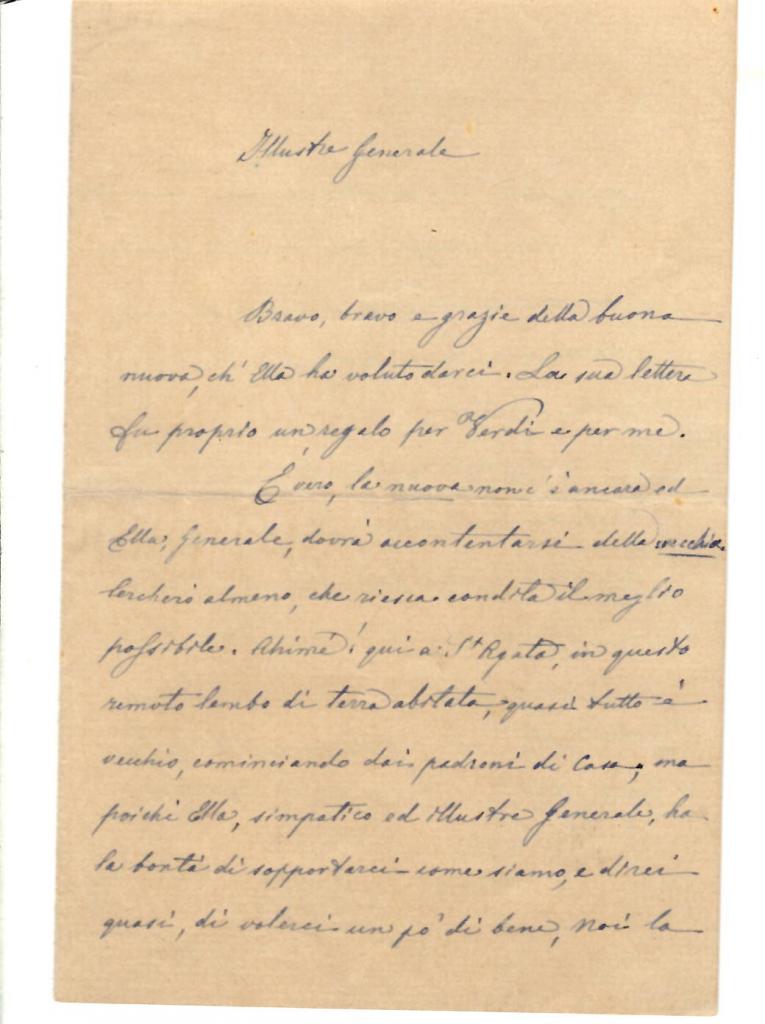 Illustre Generale
Bravo, bravo e grazie della buona
nuova, ch' Ella ha voluto darci. La sua lettera
fu proprio un regalo per Verdi e per me.
È vero, la nuova non c'è ancora ed
Ella, Generale, dovrà accontentarsi della vecchia.
Cercherò almeno, che riesca condita il meglio
possibile. Ahimè! qui a St Agata, in questo
remoto lembo di terra abitata, quasi tutto è
vecchio, cominciando dai padroni di Casa, ma
poichè Ella, simpatico ed illustre Generale, ha
la bontà di sopportarci come siamo, e direi
quasi, di volerci un pò di bene, noi la